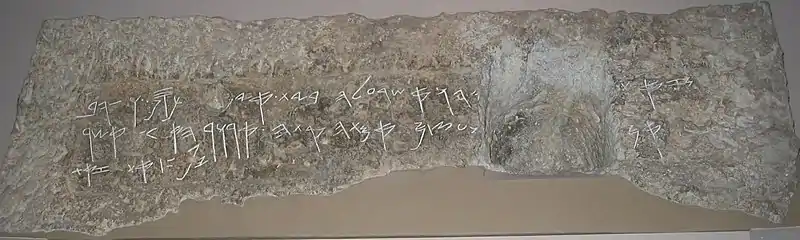 𐤆𐤀𐤕 𐤉𐤄𐤅 𐤀𐤔𐤓 𐤏𐤋 𐤄𐤁𐤉𐤕 𐤀𐤉𐤍 𐤊𐤎𐤐 𐤅𐤆𐤄𐤁
𐤀𐤌 𐤀𐤌𐤕𐤄 𐤀𐤕𐤄 𐤀𐤓𐤅𐤓 𐤄𐤀𐤃𐤌 𐤀𐤔𐤓
𐤉𐤐𐤕𐤇 𐤀𐤕 𐤆𐤀𐤕